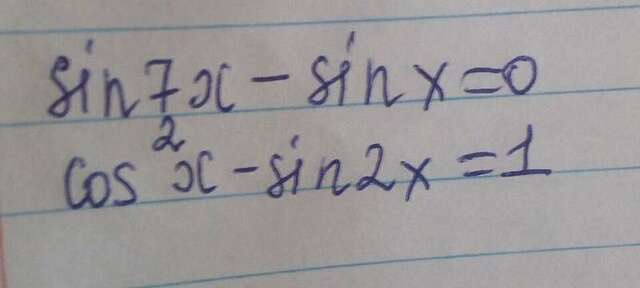 sin7x - sinx=0
cos²x - sin2x = 1